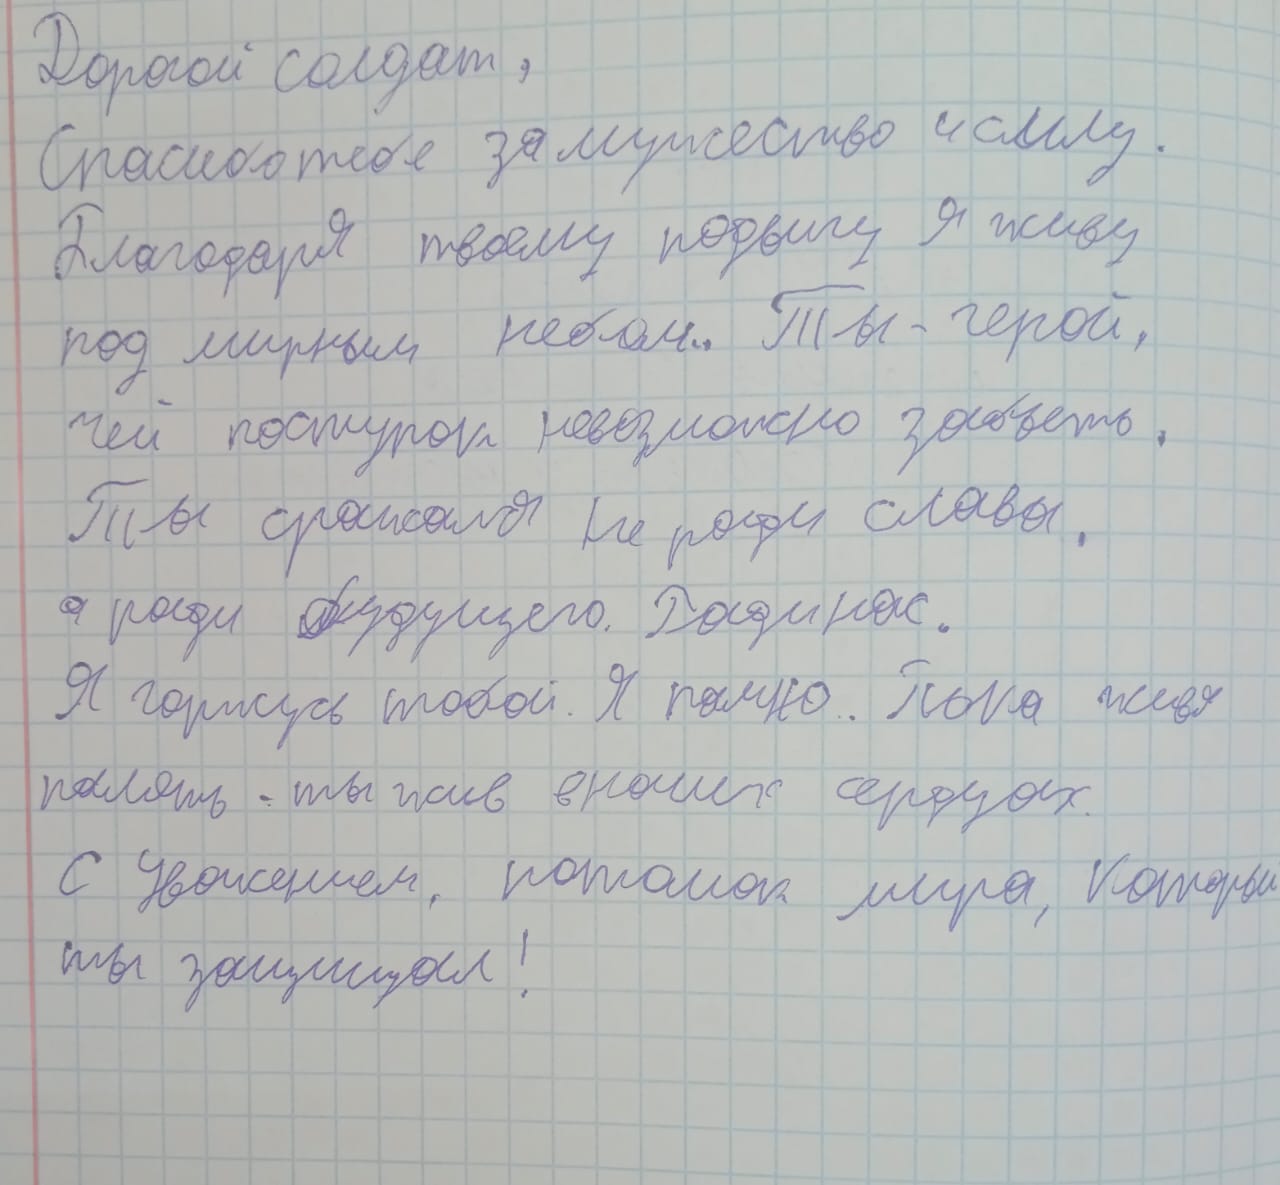 Дорогой солдат,
Спасибо тебе за мужество и силу.
Благодаря твоему подвигу я живу
под мирным небом. Ты - герой,
чей поступок невозможно забыть.
Ты сражался не ради славы,
а ради будущего. Ради нас.
Я горжусь тобой. Я помню.. Пока жива
память - ты жив в наших сердцах.
С уважением, потомок мира, который
ты защищал!